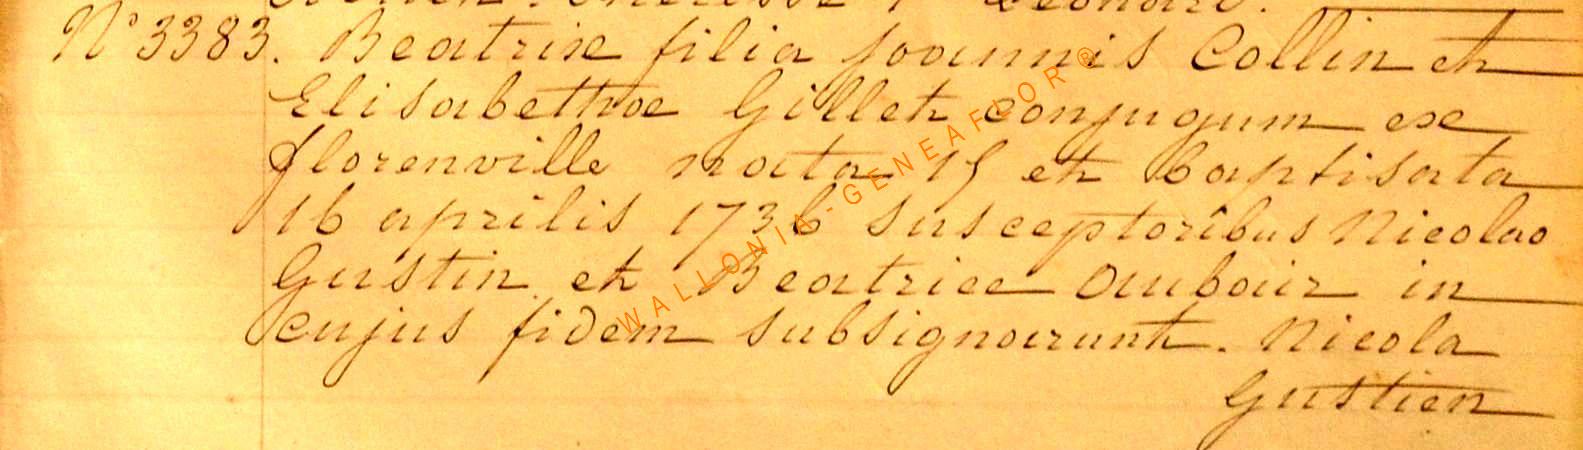 Leonard.
N° 3383. Beatrix filia Joannis Collin et
Elisabethae Gillet conjugum ex
florenville nata 15 et baptisata
16 aprilis 1736 susceptoribus Nicolao
Gustin et Beatrice Aubair in
cujus fidem subsignarunt. Nicola
Gustien
WALLONIA-GENEAFLOR®